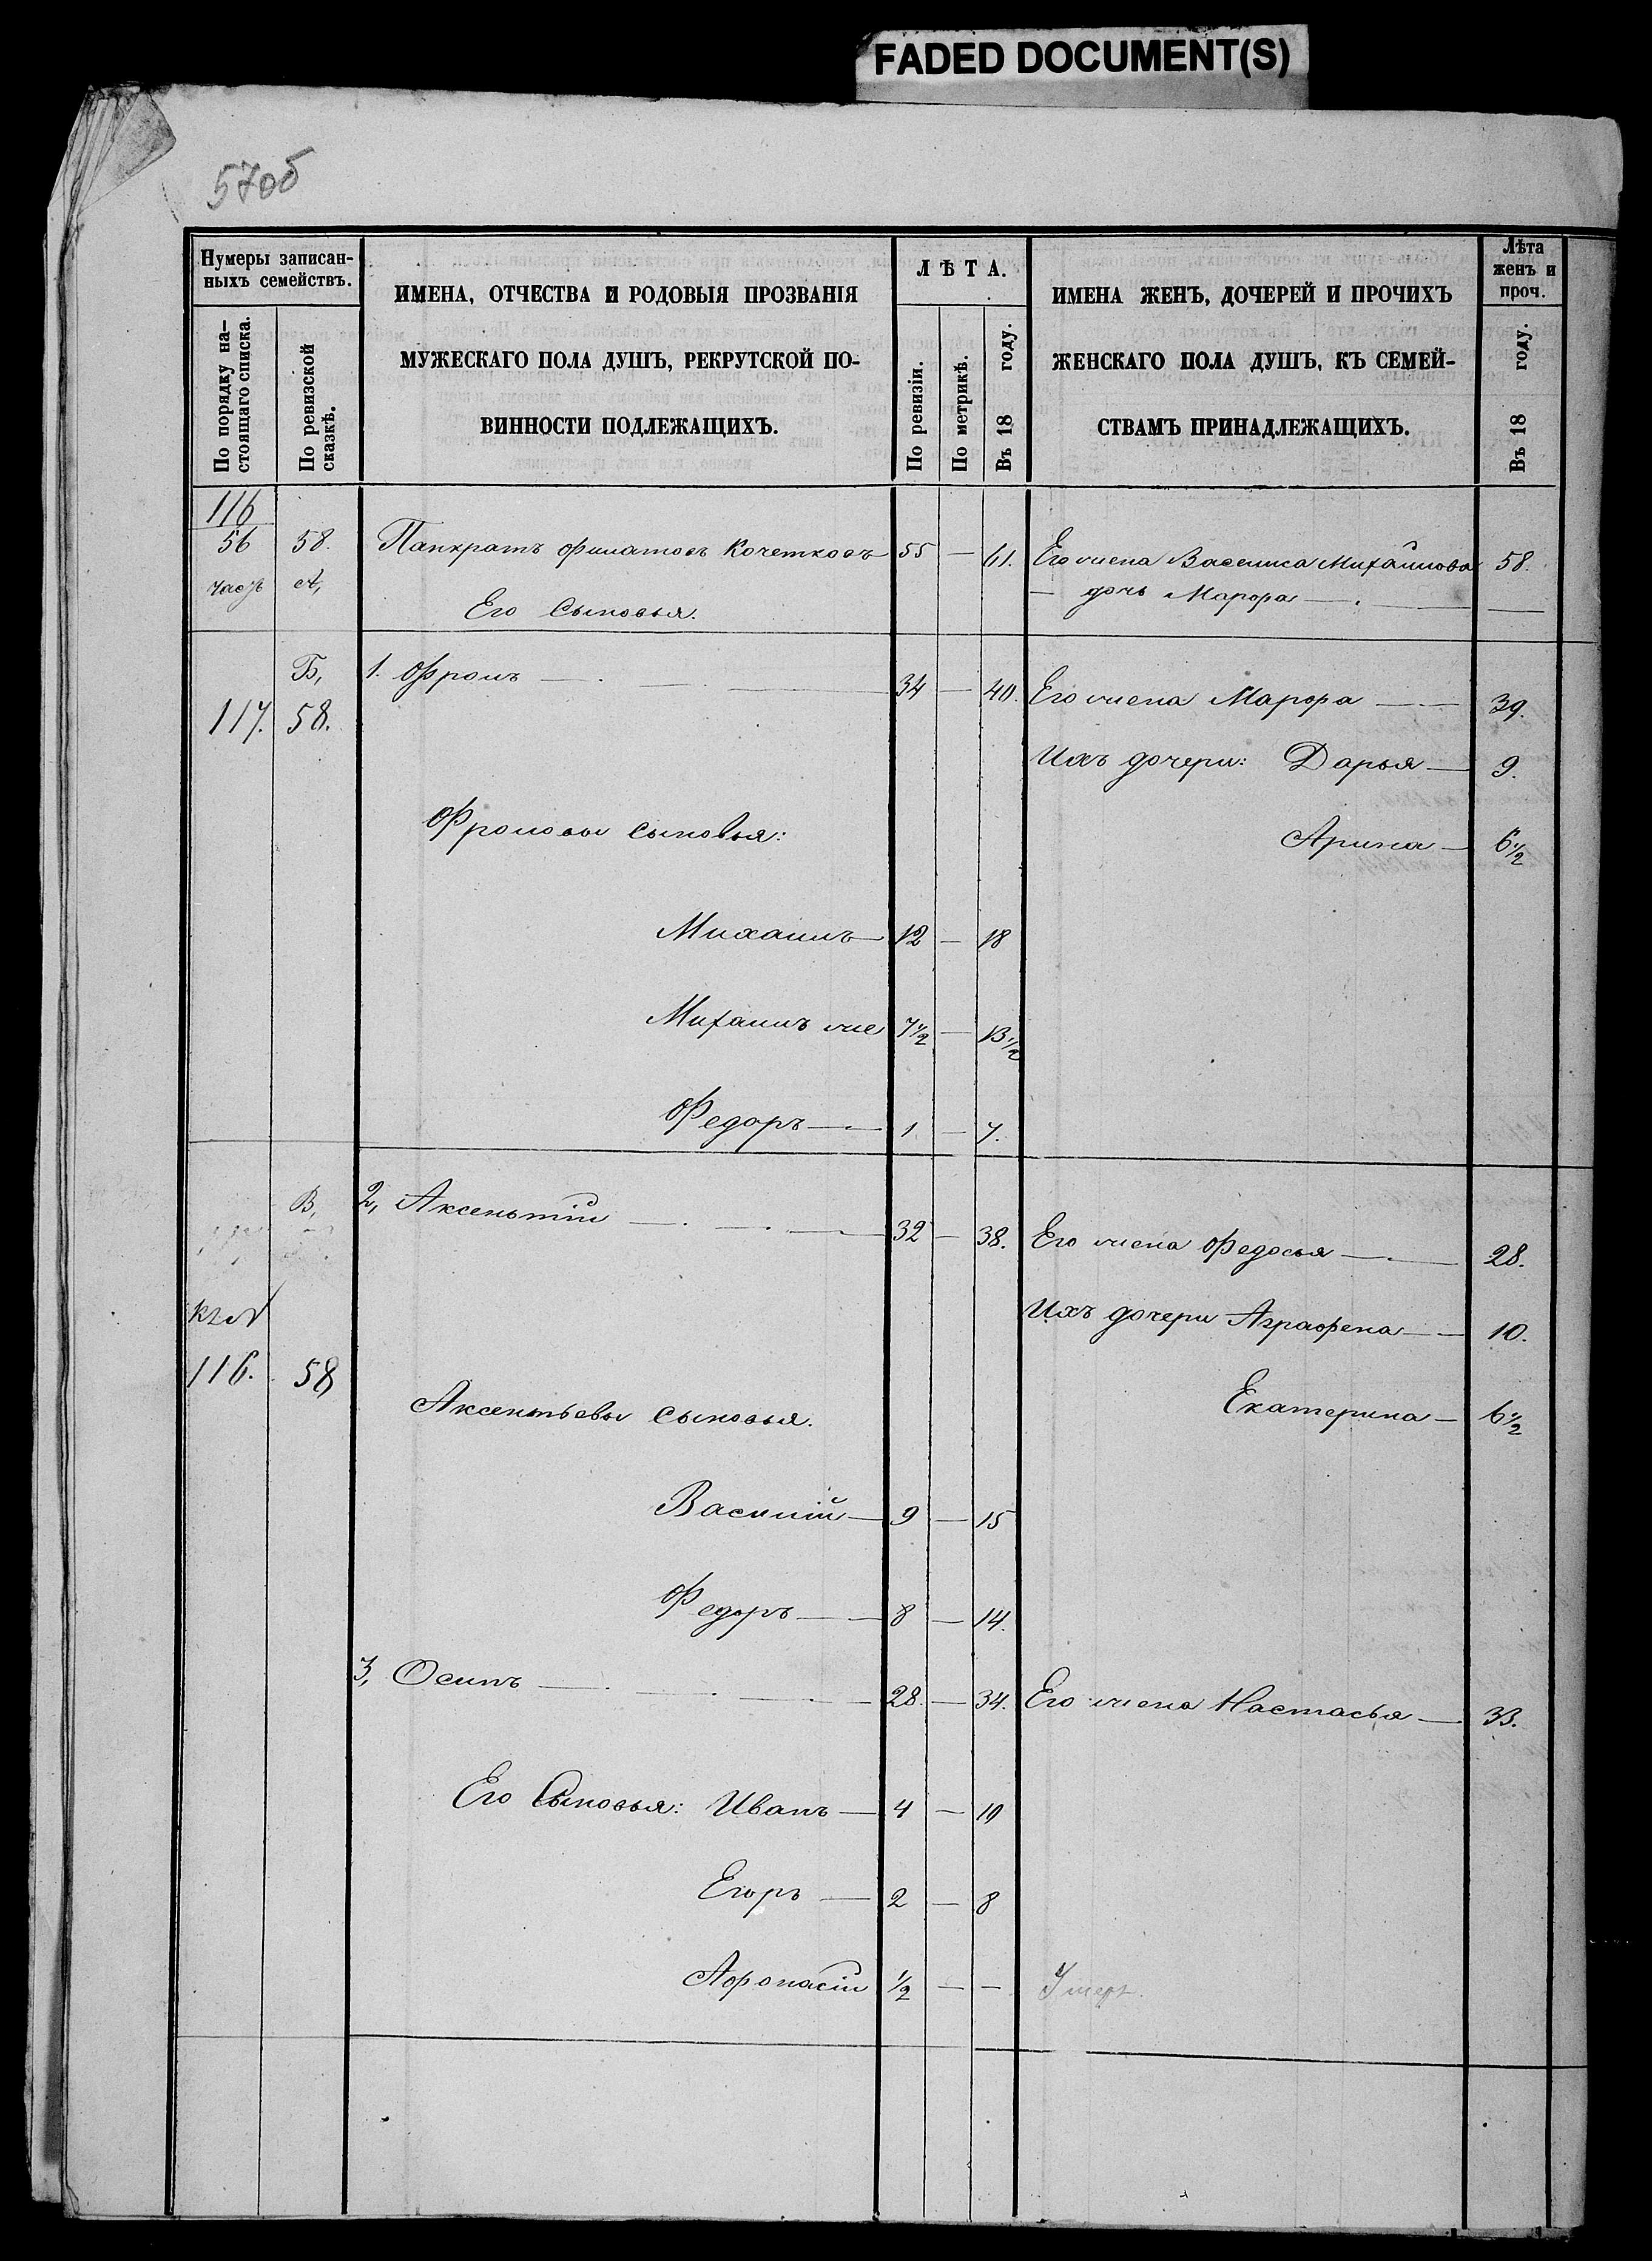 FADED DOCUMENT(S)
570б
Нумеры записан-
ныхъ семействъ.
По порядку на-
стоящаго списка.
По ревизской
сказкѣ.
ИМЕНА, ОТЧЕСТВА И РОДОВЫЯ ПРОЗВАНІЯ
МУЖЕСКАГО ПОЛА ДУШЪ, РЕКРУТСКОЙ ПО-
ВИННОСТИ ПОДЛЕЖАЩИХЪ.
ЛѢТА.
По ревизіи.
По метрикѣ.
Въ 18 году.
ИМЕНА ЖЕНЪ, ДОЧЕРЕЙ И ПРОЧИХЪ
ЖЕНСКАГО ПОЛА ДУШЪ, КЪ СЕМЕЙ-
СТВАМЪ ПРИНАДЛЕЖАЩИХЪ.
Лѣта
женъ и
проч.
Въ 18 году.
116
56 58. Панкратъ Филатовъ Кочетковъ 55 — 61. Его жена Василиса Михайлова 58.
часть А, — дочь Марфа — . —
Его Сыновья.
Б, 1. Фролъ — . — 34 — 40. Его жена Марфа — 39.
117. 58.
Ихъ дочери: Дарья — 9.
Фроловы сыновья: Арина — 6½
Михаилъ — 12 — 18
Михаилъ же 7½ — 13½
Федоръ — 1 — 7.
В, 2, Аксентій — . — 32 — 38. Его жена Федосья — 28.
Къ №
Ихъ дочери Аграфена — 10.
116. 58
Аксентьевы сыновья. Екатерина — 6½
Василій — 9 — 15
Федоръ — 8 — 14.
3, Осипъ — . — 28. — 34. Его жена Настасья — 33.
Его Сыновья: Иванъ — 4 — 10
Егоръ — 2 — 8
Афонасій ½ — — Умеръ.